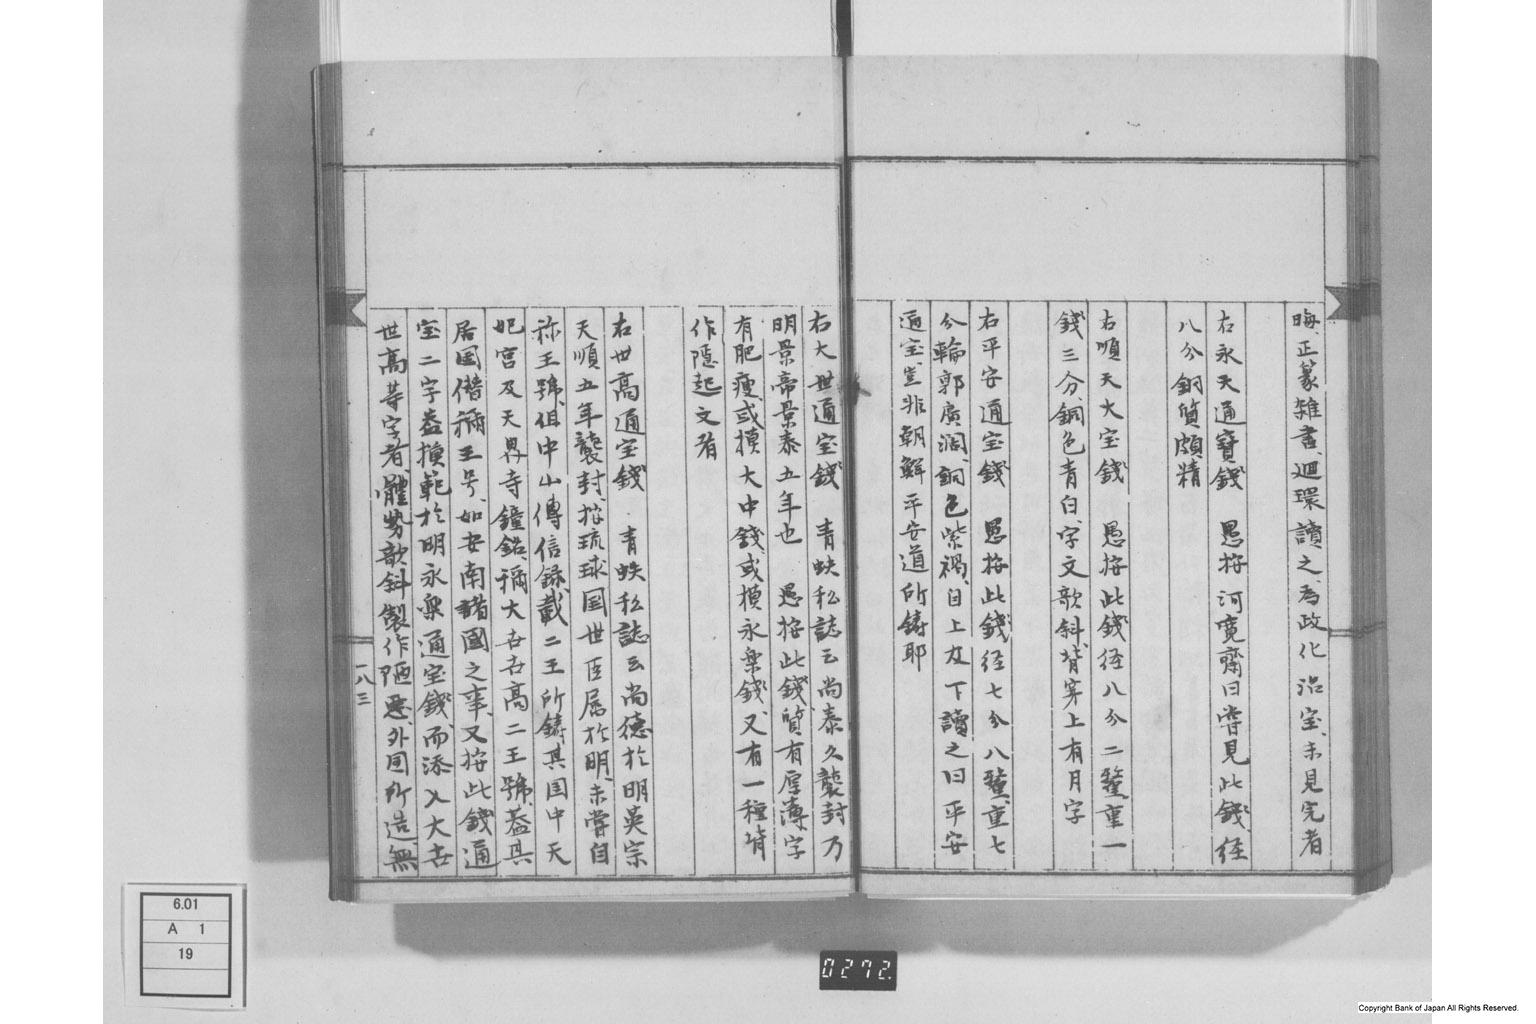 晦、正篆雑書、迴環讀之、為政化治宝、未見完者
右永天通寳錢　愚按河寛齋曰嘗見此錢、径
八分銅質頗精
右順天大宝錢　愚按此錢径八分二釐重一
錢三分、銅色青白、字文欹斜、背穿上有月字
右平安通宝錢　愚按此錢径七分八釐、重七
分輪郭廣濶、銅色紫褐、自上友下讀之曰平安
通宝、豈非朝鮮平安道所鋳耶
右大世通宝錢　青蚨私誌云尚泰久襲封乃
明景帝景泰五年也　愚按此錢質有厚薄、字
有肥瘦、或摸大中錢、或摸永楽錢、又有一種背
作隱起文者
右世高通宝錢　青蚨私誌云尚德於明英宗
天順五年襲封、按琉球国世臣属於明、未嘗自
称王號、但中山傳信録載二王所鋳其国中天
妃宮及天界寺鐘銘稱大世世高二王號、蓋其
居国僭稱王号、如安南諸國之事、又按此錢通
宝二字蓋摸範於明永楽通宝錢、而添入大世
世高等字者、體勢欹斜製作陋悪、外国所造無
一八三
6.01
A 1
19
0272.
Copyright Bank of Japan All Rights Reserved.